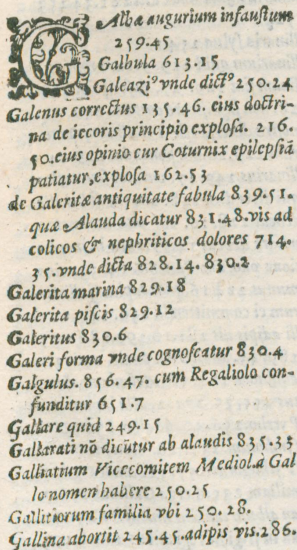 Galbæ augurium infaustum
259.45
Galbula 613.15
Galeaziꝰ vnde dictꝰ 250.24
Galenus correctus 135.46. eius doctri-
na de iecoris principio explosa. 216.
50. eius opinio cur Coturnix epilepsiã
patiatur, explosa 162.53
de Galeritæ antiquitate fabula 839.51.
quæ Alauda dicatur 831.48. vis ad
colicos & nephriticos dolores 714.
35. vnde dicta 828.14. 830.2
Galerita marina 829.18
Galerita piscis 829.12
Galeritus 830.6
Galeri forma vnde cognoscatur 830.4
Galgulus. 856.47. cum Regaliolo con-
funditur 651.7
Gallare quid 249.15
Gallarati nõ dicũtur ab alaudis 835.33
Galliatium Vicecomitem Mediol. à Gal
lo nomen habere 250.25
Gallitiorum familia vbi 250.28.
Gallina abortit 245.45. adipis vis. 286.